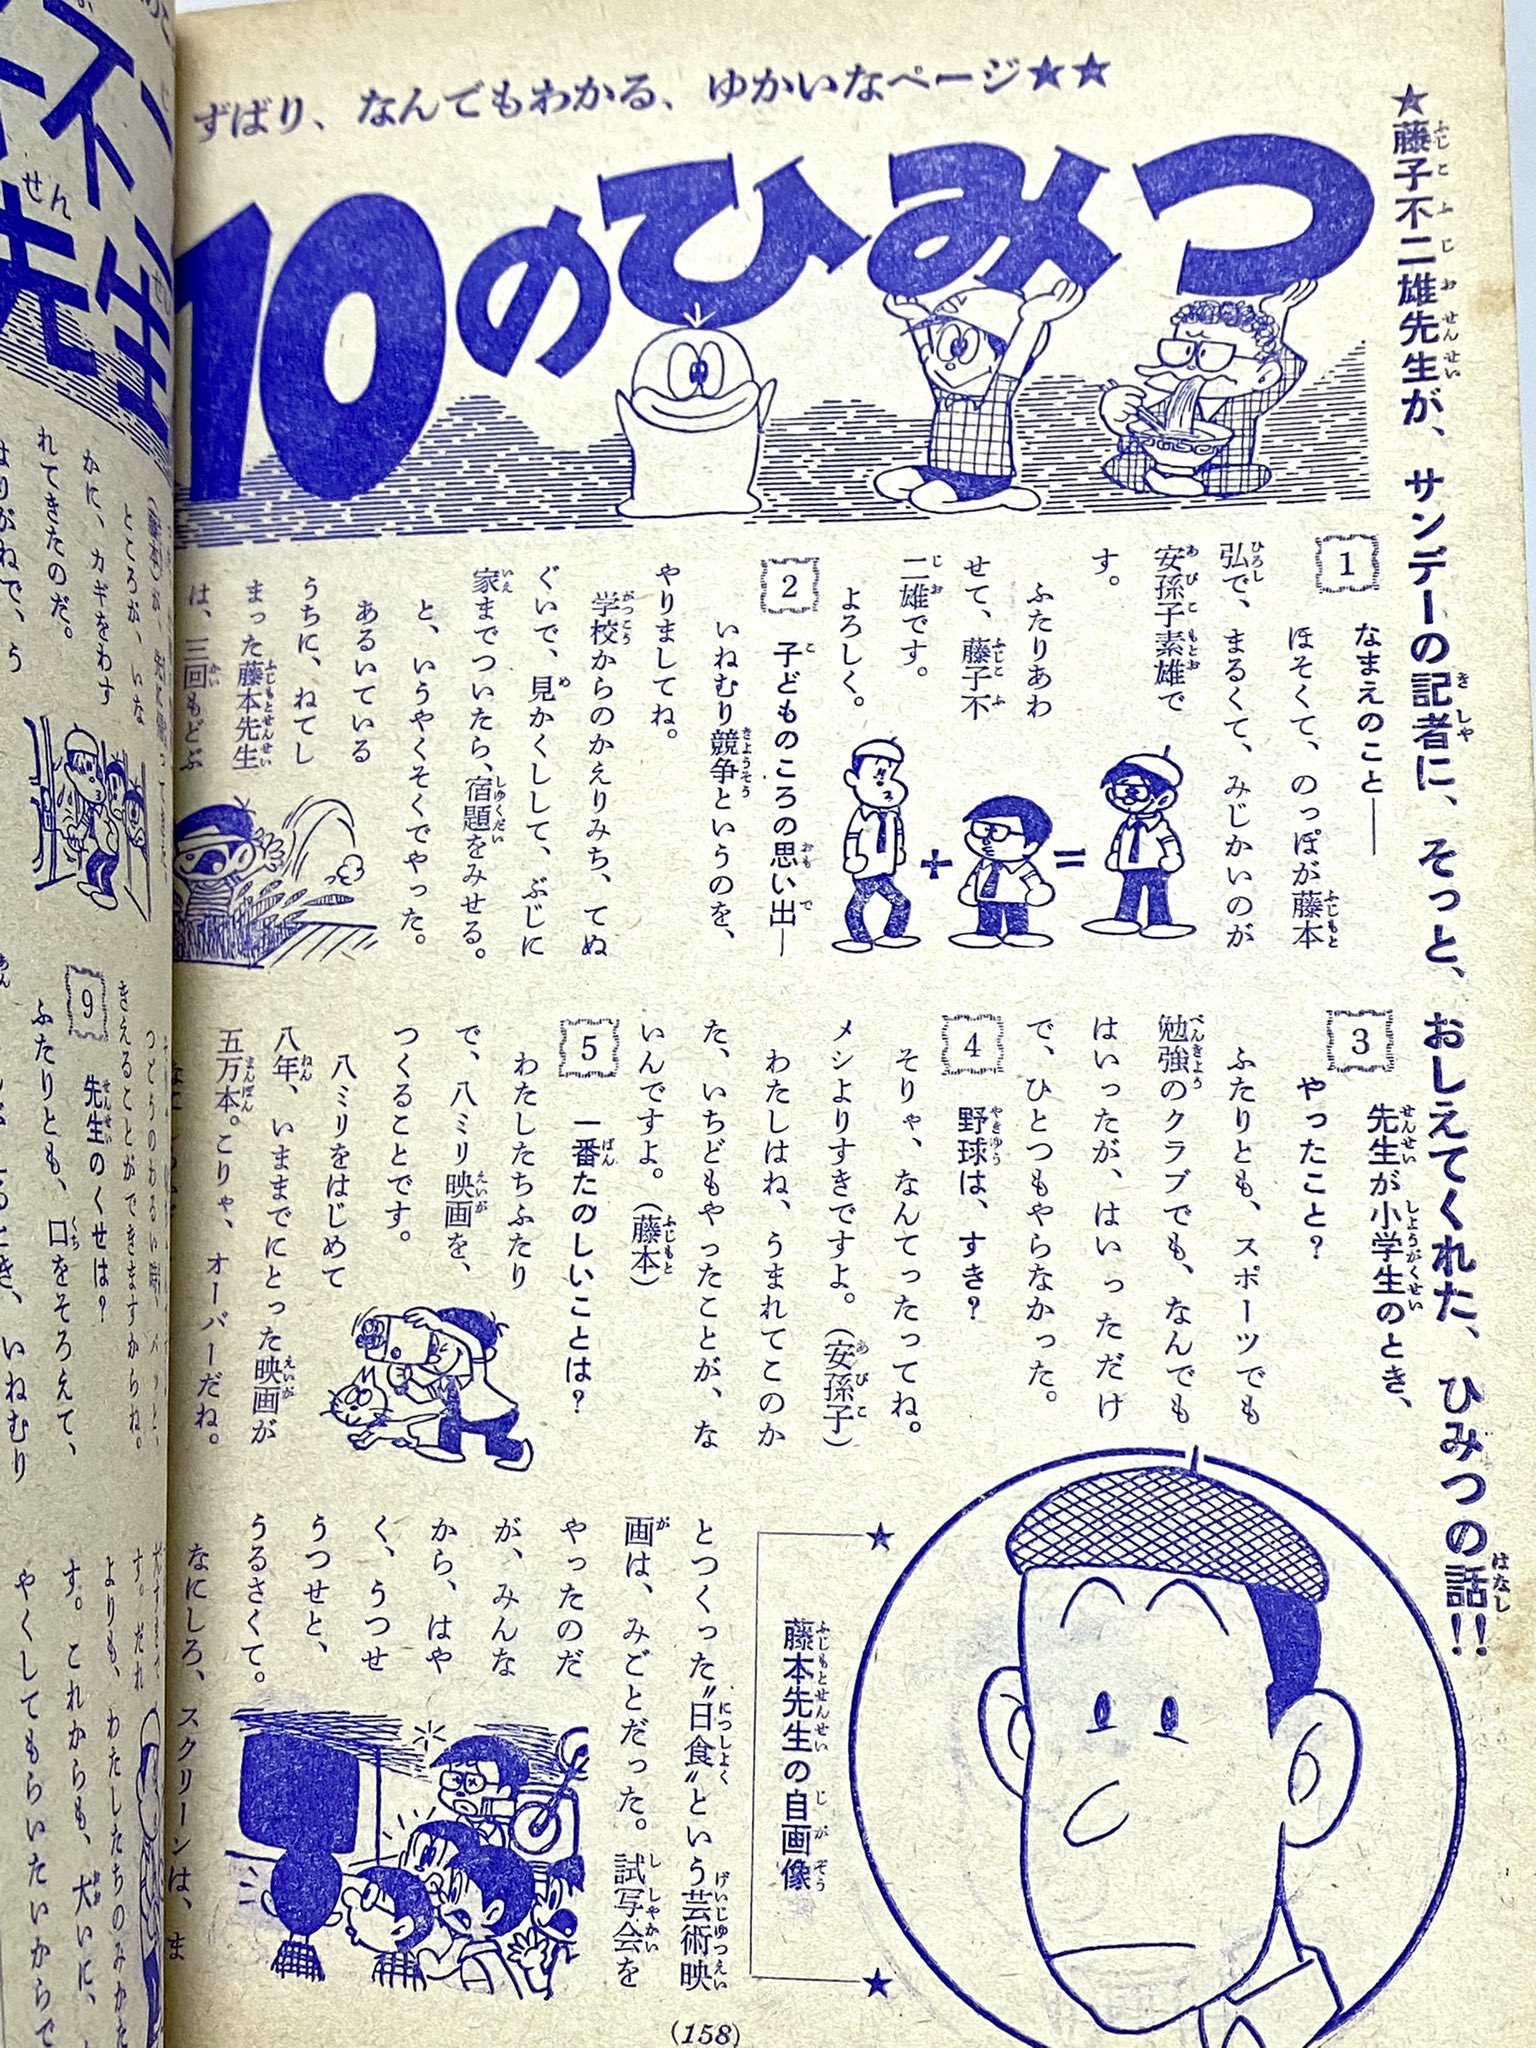 ずばり、なんでもわかる、ゆかいなページ★★
10のひみつ
★藤子不二雄先生が、サンデーの記者に、そっと、おしえてくれた、ひみつの話!!
1
なまえのこと――
ほそくて、のっぽが藤本
弘で、まるくて、みじかいのが
安孫子素雄で
す。
ふたりあわ
せて、藤子不
二雄です。
よろしく。
2
子どものころの思い出―
いねむり競争というのを、
やりましてね。
学校からのかえりみち、てぬ
ぐいで、見かくしして、ぶじに
家までついたら、宿題をみせる。
と、いうやくそくでやった。
あるいている
うちに、ねてし
まった藤本先生
は、三回もどぶ
3
先生が小学生のとき、
やったこと?
ふたりとも、スポーツでも
勉強のクラブでも、なんでも
はいったが、はいっただけ
で、ひとつもやらなかった。
4
野球は、すき?
そりゃ、なんてったってね。
メシよりすきですよ。(安孫子)
わたしはね、うまれてこのか
た、いちどもやったことが、な
いんですよ。(藤本)
5
一番たのしいことは?
わたしたちふたり
で、八ミリ映画を、
つくることです。
八ミリをはじめて
八年、いままでにとった映画が
五万本。こりゃ、オーバーだね。
★
藤本先生の自画像
★
とつくった〝日食〟という芸術映
画は、みごとだった。試写会を
やったのだ
が、みんな
から、はや
く、うつせ
うつせと、
うるさくて。
なにしろ、スクリーンは、ま
(158)
先生
せん
ところが、いな
かに、カギをわす
れてきたのだ。
はりがねで、う
きえることができますからね。
9
先生のくせは?
ふたりとも、口をそろえて、
いねむり
よりも、わたしたちのみかた
す。これからも、大いに、
やくしてもらいたいからで